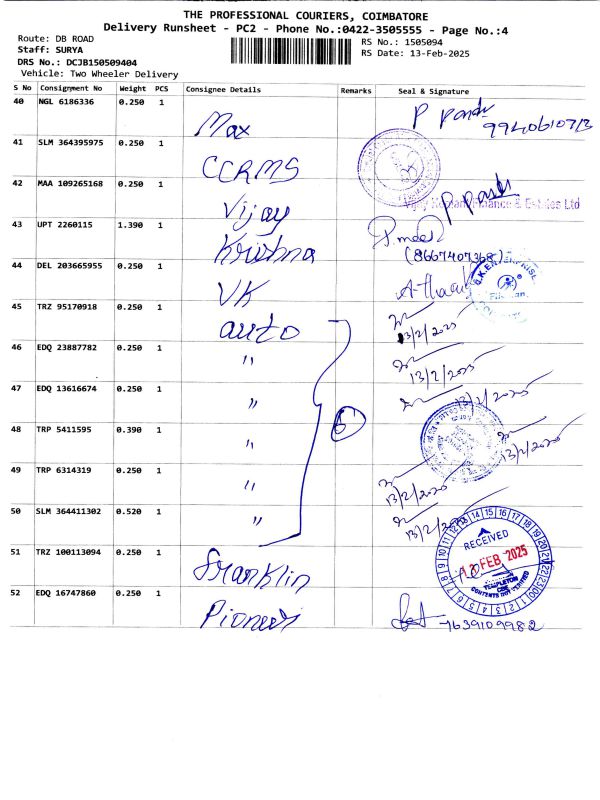 THE PROFESSIONAL COURIERS, COIMBATORE
Delivery Runsheet - PC2 - Phone No.:0422-3505555 - Page No.:4
Route: DB ROAD
RS No.: 1505094
Staff: SURYA
RS Date: 13-Feb-2025
DRS No.: DCJB150509404
Vehicle: Two Wheeler Delivery
S No Consignment No Weight PCS Consignee Details Remarks Seal & Signature
40 NGL 6186336 0.250 1 Max
41 SLM 364395975 0.250 1 CCRMS
42 MAA 109265168 0.250 1 Vijay
43 UPT 2260115 1.390 1 Krishna (8667407368)
44 DEL 203665955 0.250 1 VK
45 TRZ 95170918 0.250 1 auto 13/2/2025
46 EDQ 23887782 0.250 1 " 13/2/2025
47 EDQ 13616674 0.250 1 " 13/2/2025
48 TRP 5411595 0.390 1 " 6 13/2/2025
49 TRP 6314319 0.250 1 " 13/2/2025
50 SLM 364411302 0.520 1 " 13/2/2025
51 TRZ 100113094 0.250 1 Franklin RECEIVED FEB 2025 CONTENTS NOT VERIFIED
52 EDQ 16747860 0.250 1 Pioneer 7639109982